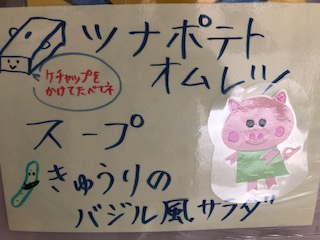 ツナポテト
オムレツ
ケチャップを
かけてたべてネ
スープ
きゅうりの
バジル風サラダ